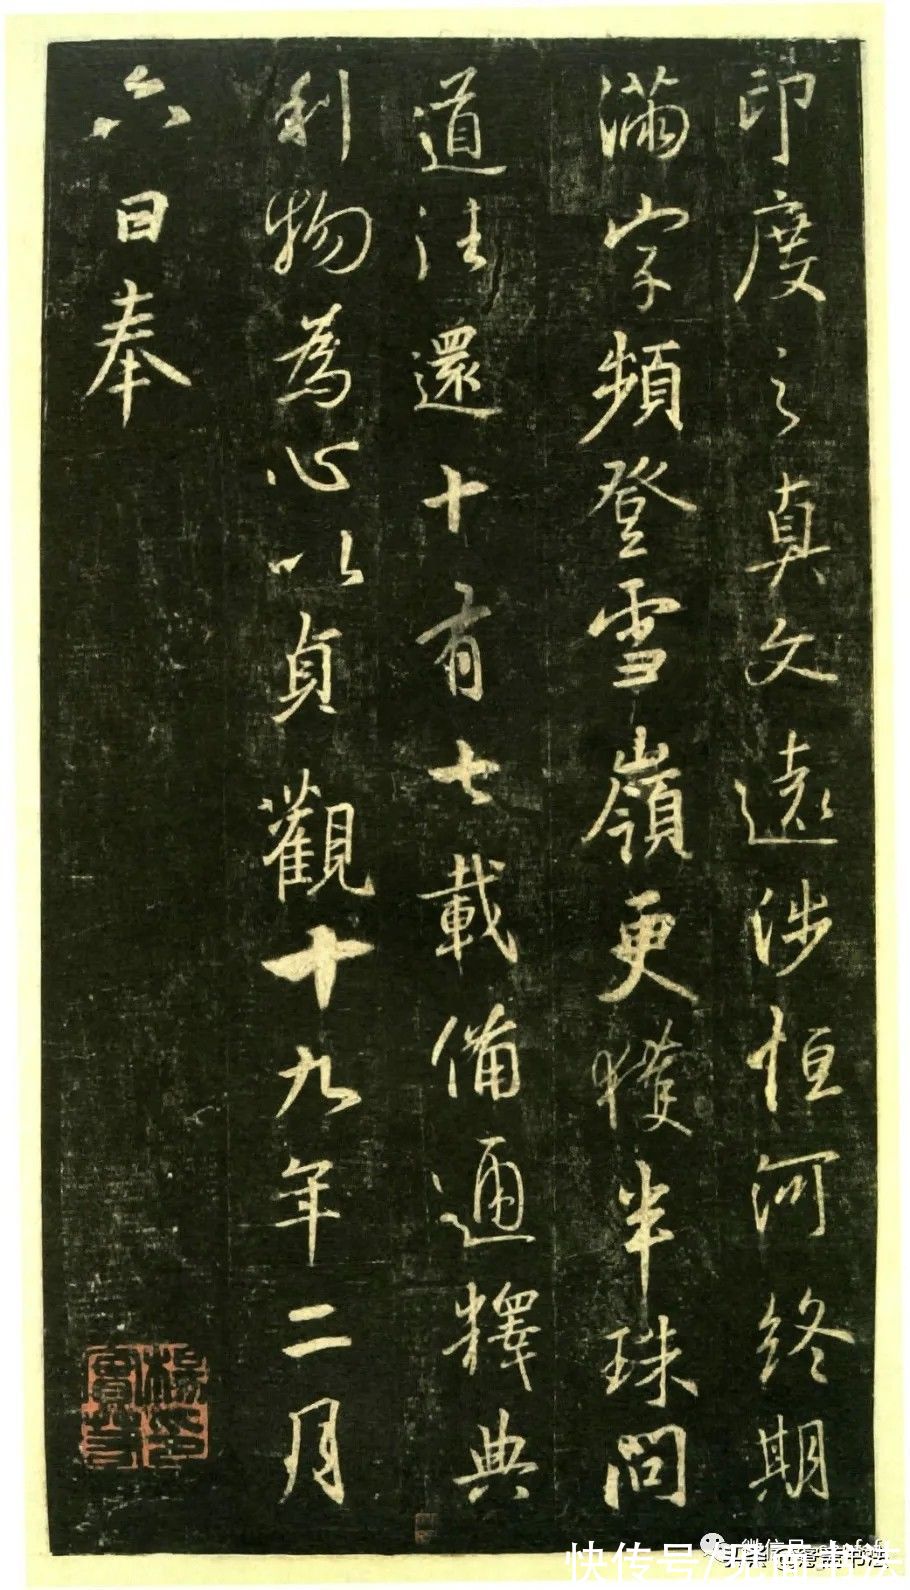 印度之真文遠涉恒河終期
滿字頻登雪嶺更獲半珠問
道法還十有七載備通釋典
利物為心以貞觀十九年二月
六日奉